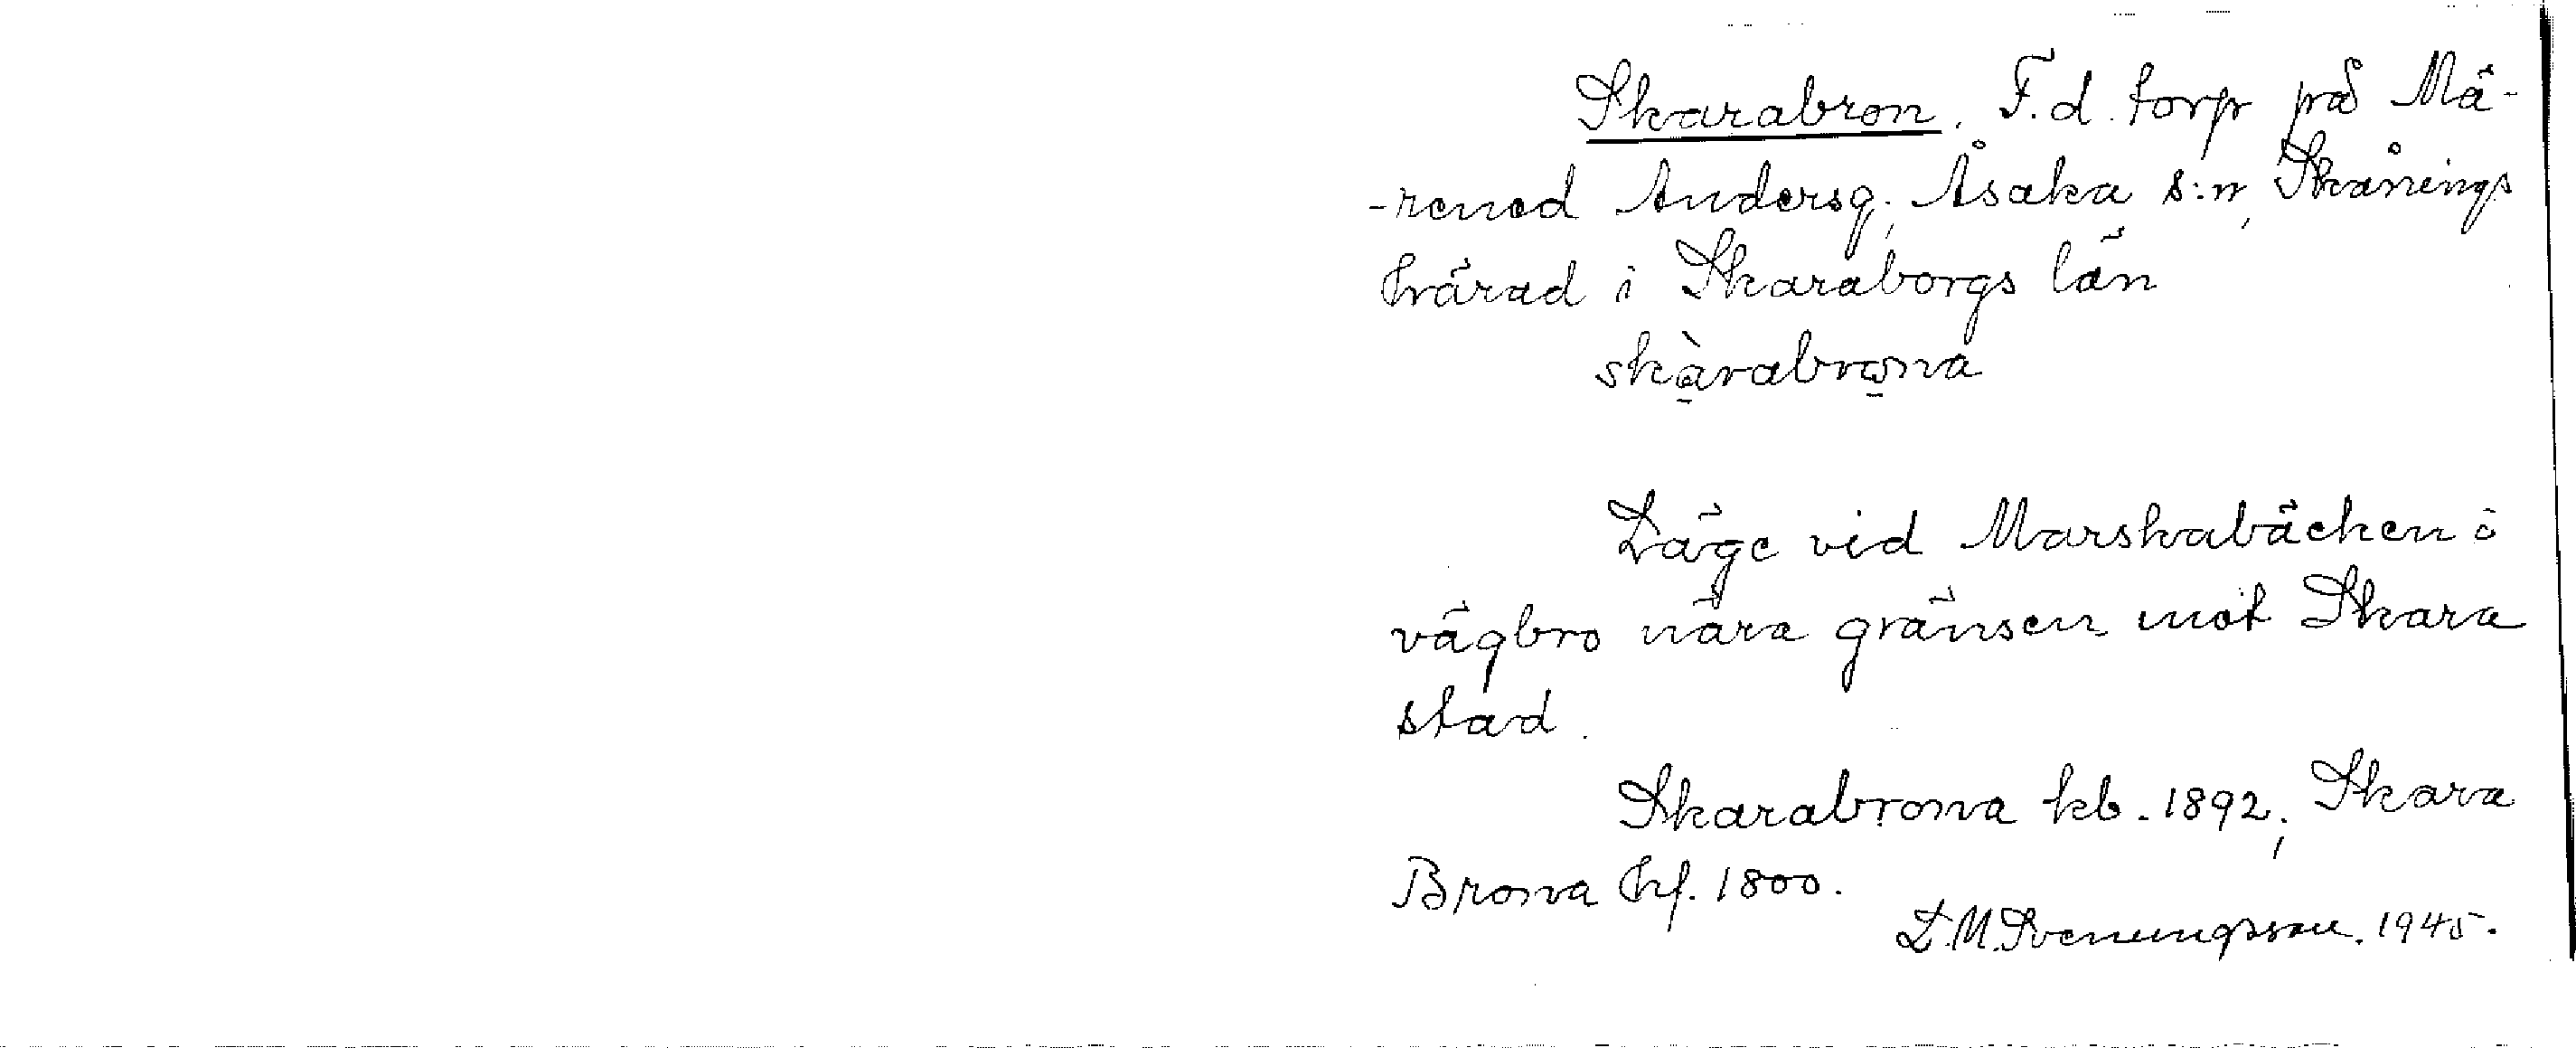 Skarabron. F.d. torp på Mä-
-rened Andersg., Åsaka s:n, Skånings
härad i Skaraborgs län
skàrabrona
Läge vid Marskabäcken i
vägbro nära gränsen mot Skara
stad.
Skarabrona kb. 1892; Skara
Brona hf. 1800.
L.M. Svenungsson. 1945.